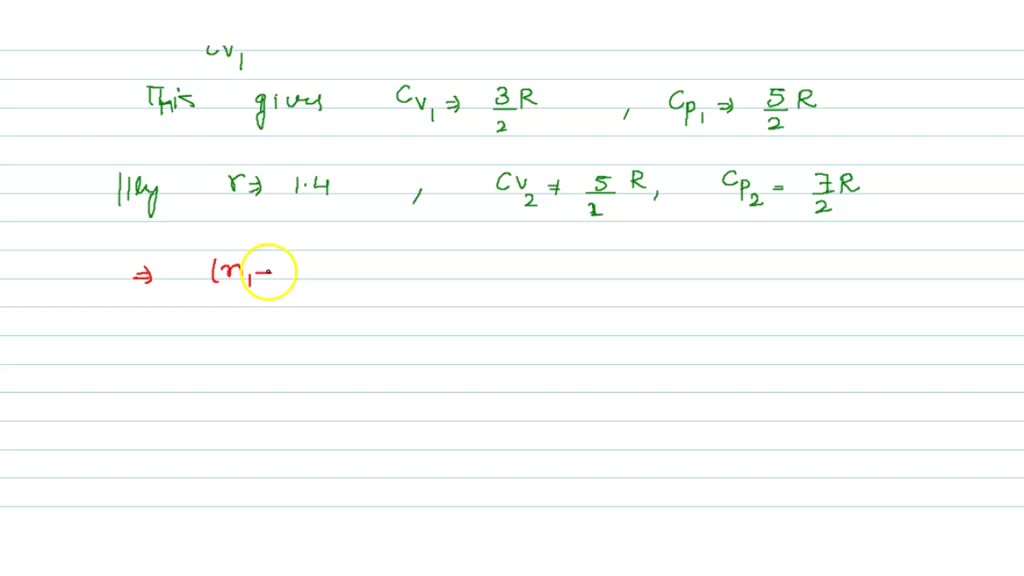 CV₁
This gives Cv₁ ⇒ 3/2 R , Cp₁ ⇒ 5/2 R
||ly r ⇒ 1.4 , CV₂ = 5/2 R, Cp₂ = 7/2 R
⇒ (n₁ -